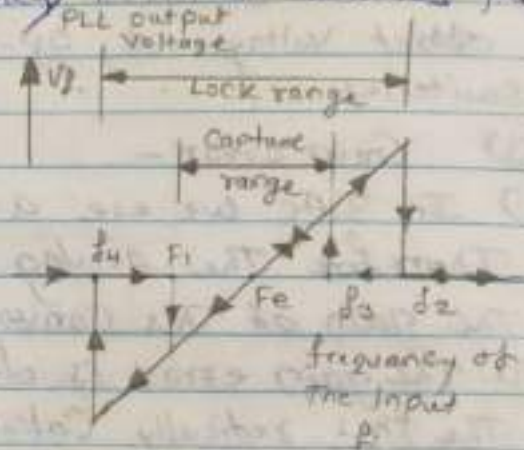 PLL output
voltage
Vf.
Lock range
Capture
range
f4
F1
Fe
f3
f2
frequancy of
The Input